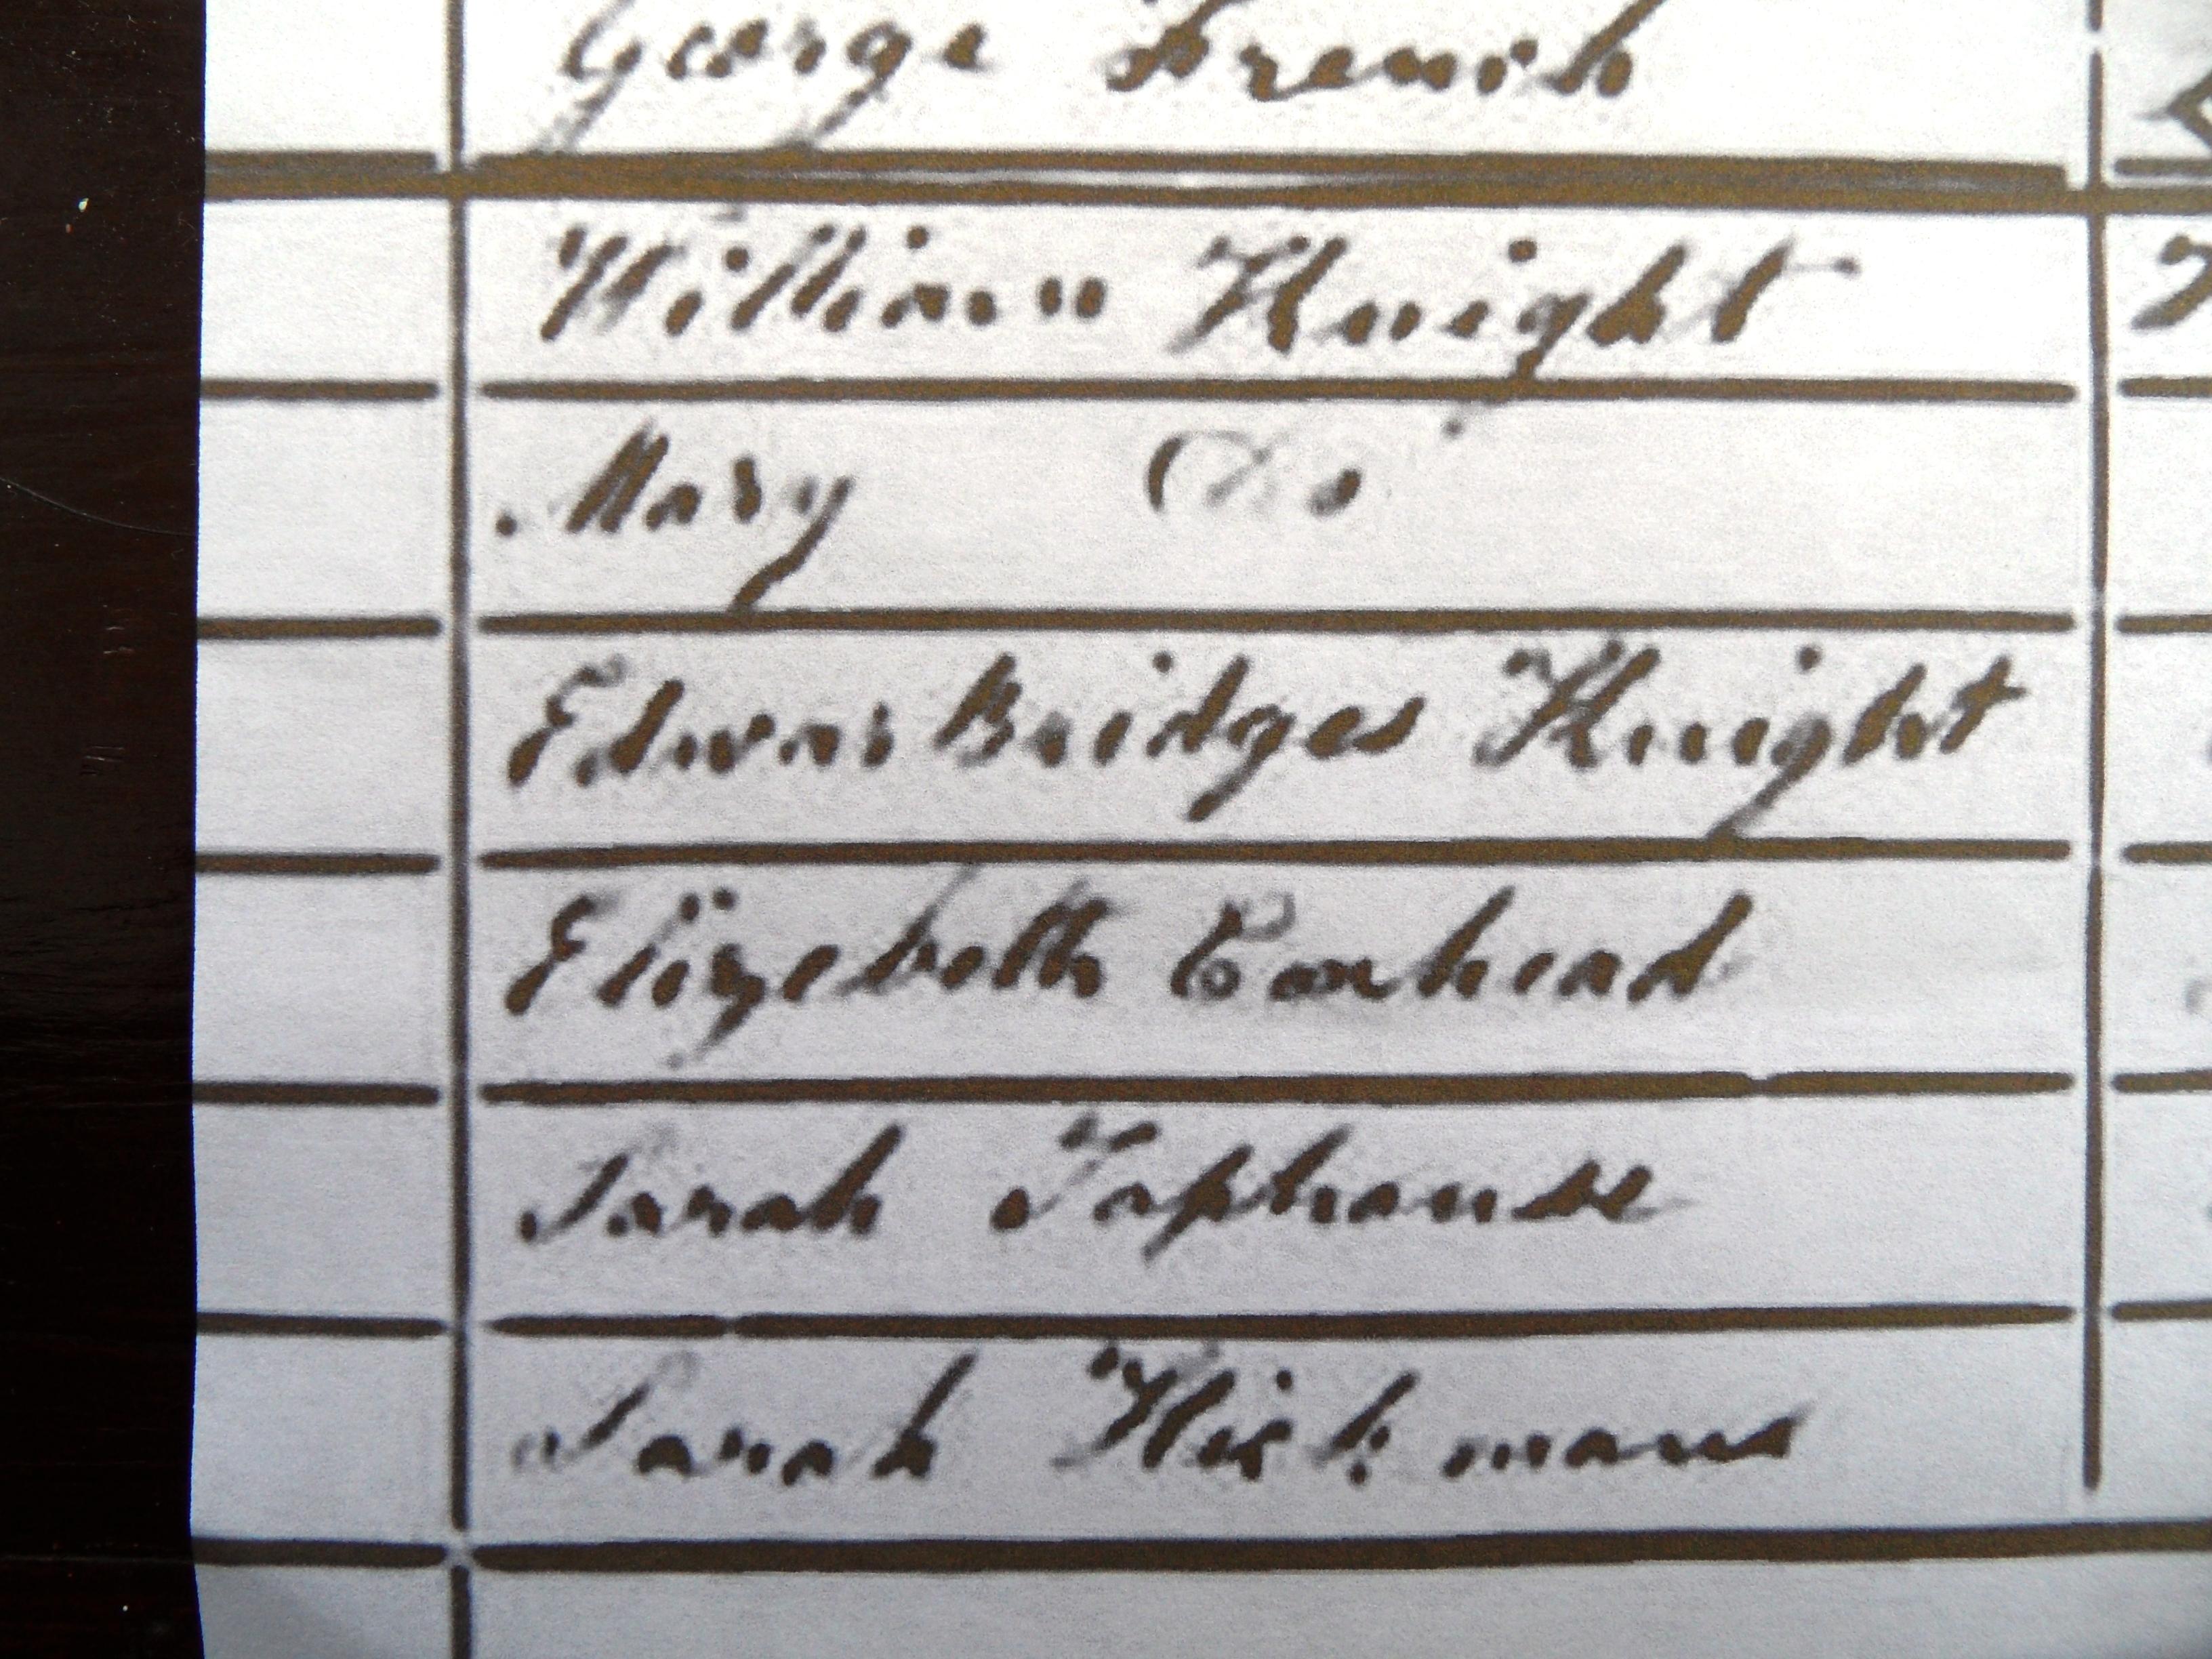 George French
William Knight
Mary Do
Edwar Bridges Knight
Elizebeth Coxhead
Sarah Tophouse
Sarah Hickmans